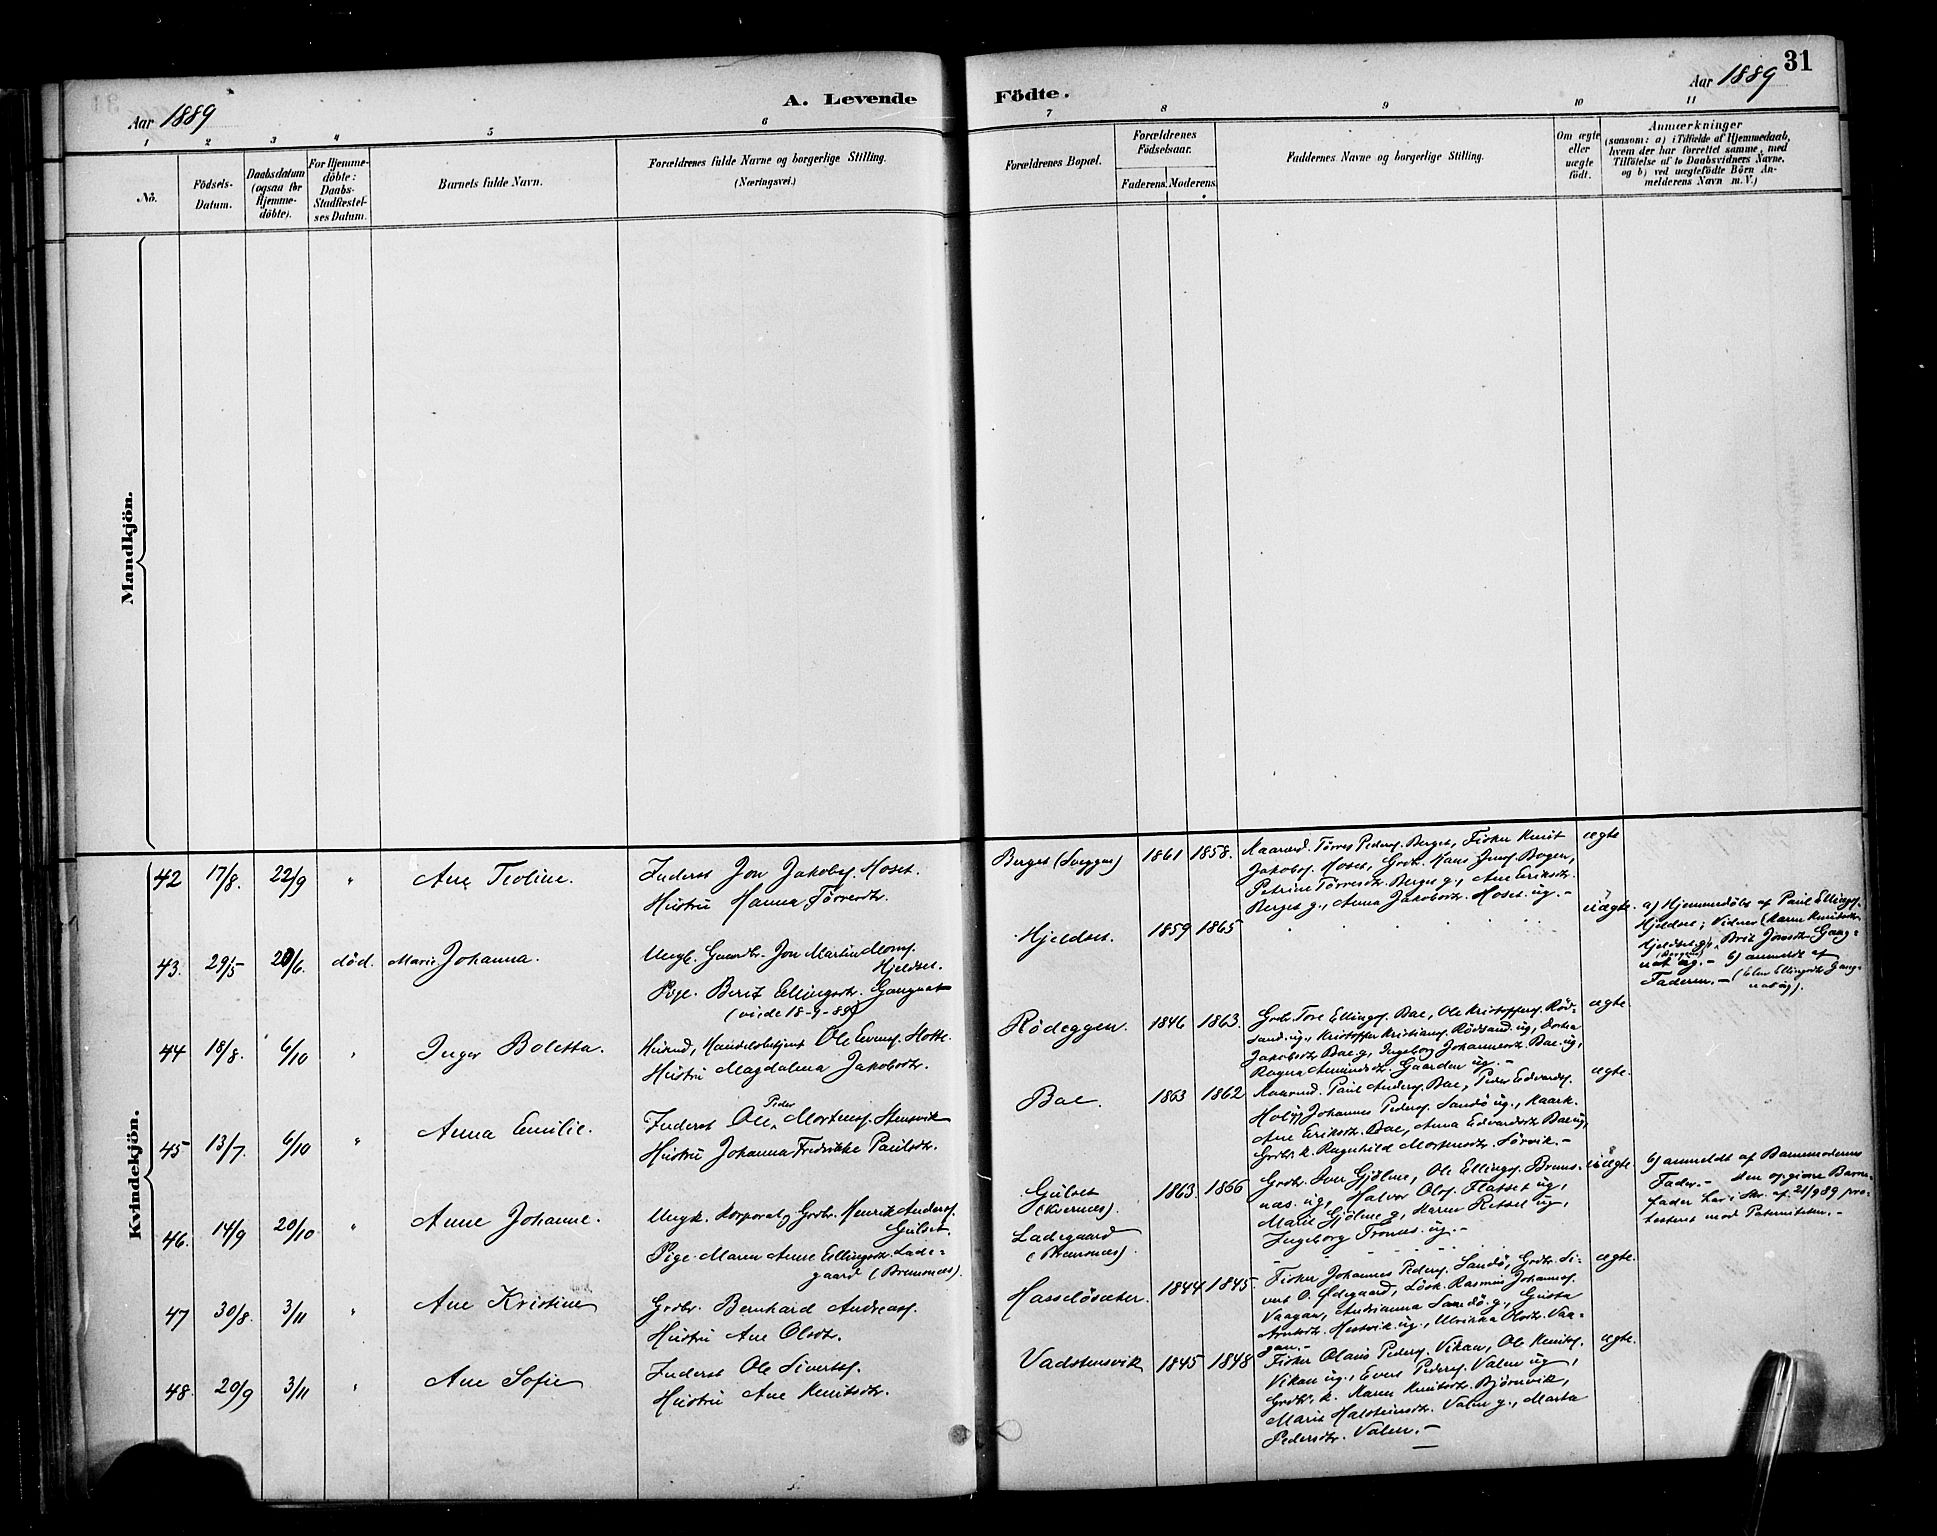 31
Aar 1889
A. Levende Födte.
Aar 1889
1 2 3 4 5 6 7 8 9 10 11
No.
Födsels-Datum.
Daabsdatum (ogsaa for Hjemme-döbte).
For Hjemme-döbte: Daabs-Stadfæstel-ses Datum.
Barnets fulde Navn.
Forældrenes fulde Navne og borgerlige Stilling.
(Næringsvei.)
Forældrenes Bopæl.
Forældrenes Födselsaar.
Faderens. Moderens.
Faddernes Navne og borgerlige Stilling.
Om ægte eller uægte født.
Anmærkninger
(saasom: a) i Tilfælde af Hjemmedaab,
hvem der har forrettet samme, med
Tilföielse af to Daabsvidners Navne,
og b) ved uægtefödte Börn An-
melderens Navn m. V.)
Mandkjön.
Kvindekjön.
42 17/8. 22/9 " Ane Teoline.
Inderst Jon Jakobs. Moset.
Hustru Hanna Törresdtr.
Berget (Sveggen) 1861 1858.
Törres Peders. Berget, Fisker Knut
Jakobs. Moset, Grdb. Hans Jens. Bogen,
Petrine Törresdtr. Berget g., Ane Eriksdtr.
Berget g., Anna Jakobsdtr. Moset ug. -
ægte
43. 29/5 20/6. død. Marie Johanna.
Ungk. Gaardbr. Jon Martin
Hjeldset.
Pige Berit Ellingsdtr. Gangnat
(viede 18-9-89)
Hjeldset. 1859 1865
uægte.
a) Hjemmedöbt af Paul Ellings.
Hjeldset; Vidner Karen Knutsdtr.
Hjeldset g., Brit Jonsdtr. Gang-
nat ug. - b) anmeldt af
Faderen. - (Elen Ellingsdtr. Gang-
nat ug).
44 18/8. 6/10 " Inger Boletta.
Husmd, Handelsbetjent Ole Evens. Holte.
Hustru Magdalena Jakobsdtr.
Rödeggen. 1846 1863.
Grdbr. Tore Ellings. Bae, Ole Kristoffers. Röd-
sand ug., Kristoffer Kristians. Rödsand ug, Dorthea
Jakobsdtr. Bae g, Ingeborg Johannesdtr. Bae ug,
Ragna Amundsdtr. Gaarden ug. -
ægte.
45 13/7. 6/10 " Anna Emilie.
Inderst Ole Peder Mortens. Stensvik
Hustru Johanna Fredrikke Paulsdtr.
Bae. 1863 1862
Paul Anders. Bae, Peder Edvards.
Johannes Peders. Sandö ug., Kaark.
Ane Eriksdtr. Bae, Anna Edvardsdtr. Bae ug,
Grdbr. k. Ragnhild Mortensdtr. Sörvik. -
ægte.
46. 14/9 20/10 " Anne Johanne.
Ungk. Korporal, Grdbr. Henrik Anders.
Gülset.
Pige Maren Anne Ellingsdtr. Lade-
gaard (Bremsnes).
Gülset
(Kvernes).
Ladegaard
(Bremsnes).
1863. 1866
Grdbr. Iver Gjölme, Ole Ellings. Brems-
nes ug, Halvor Ols. Flatset ug,
Marit Gjölme g, Karen Retsel ug,
Ingeborg Trones ug. -
uægte.
b) anmeldt af Barnemoderens
Fader. - Den opgivne Barne-
fader har i Skr. af 21/9 89 pro-
testeret mod Paterniteten. -
47 30/8. 3/11 " Ane Kristine
Grdbr. Bernhard Andreass.
Hustru Ane Olsdtr.
Hasselösæter. 1844 1845.
Fisker Johannes Peders. Sandö, Grdbr. Si-
vert O. Ødegaard, Lösk. Rasmus Johannes.
Vaagan, Andrianna Sandö g., Gusta
Arntsdtr. Hestvik ug., Ulrikka Olsdtr. Vaa-
gan. -
ægte.
48. 20/9 3/11 " Ane Sofie
Inderst Ole Siverts.
Hustru Ane Knutsdtr.
Vadstensvik 1845 1848
Fisker Olaus Peders. Vikan, Ole Knuts.
Vikan ug., Evert Peders. Valen ug,
Grdbr. k. Karen Knutsdtr. Bjørnvik,
Marit Halsteinsdtr. Valen g., Marta
Pedersdtr. Valen. -
ægte.